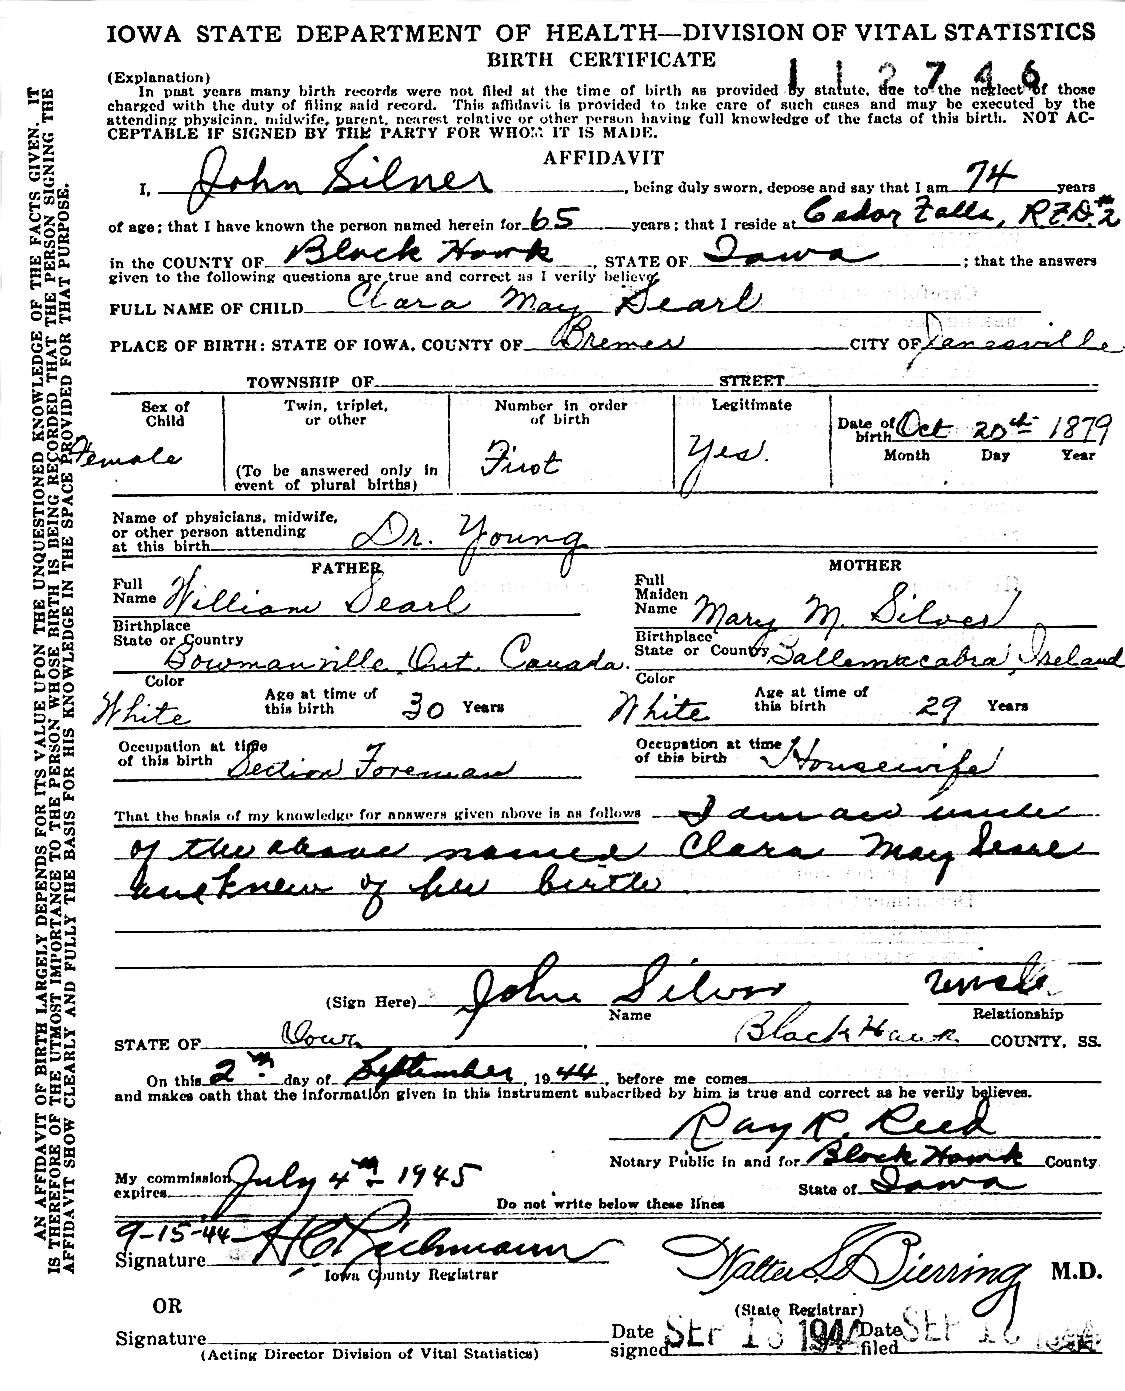 IOWA STATE DEPARTMENT OF HEALTH—DIVISION OF VITAL STATISTICS
BIRTH CERTIFICATE
112746
(Explanation)
In past years many birth records were not filed at the time of birth as provided by statute, due to the neglect of those
charged with the duty of filing said record. This affidavit is provided to take care of such cases and may be executed by the
attending physician, midwife, parent, nearest relative or other person having full knowledge of the facts of this birth. NOT AC-
CEPTABLE IF SIGNED BY THE PARTY FOR WHOM IT IS MADE.
AFFIDAVIT
I, John Silver, being duly sworn, depose and say that I am 74 years
of age; that I have known the person named herein for 65 years; that I reside at Cedar Falls, R.F.D. #2
in the COUNTY OF Black Hawk, STATE OF Iowa; that the answers
given to the following questions are true and correct as I verily believe.
FULL NAME OF CHILD Clara May Searl
PLACE OF BIRTH: STATE OF IOWA, COUNTY OF Bremer CITY OF Janesville
TOWNSHIP OF STREET
Sex of Child Female
Twin, triplet, or other (To be answered only in event of plural births)
Number in order of birth First
Legitimate Yes.
Date of birth Oct 20th 1879
Month Day Year
Name of physicians, midwife,
or other person attending
at this birth Dr. Young
FATHER
Full Name William Searl
Birthplace State or Country Bowmanville Ont. Canada.
Color White Age at time of this birth 30 Years
Occupation at time of this birth Section Foreman
MOTHER
Full Maiden Name Mary M. Silver
Birthplace State or Country Ireland
Color White Age at time of this birth 29 Years
Occupation at time of this birth Housewife
That the basis of my knowledge for answers given above is as follows I am an uncle
of the above named Clara May Searl
and knew of her birth
(Sign Here) John Silver Uncle
Name Relationship
STATE OF Iowa Black Hawk COUNTY, SS.
On this 2nd day of September, 1944, before me comes
and makes oath that the information given in this instrument subscribed by him is true and correct as he verily believes.
Ray R. Reed
Notary Public in and for Black Hawk County
My commission expires July 4th - 1945 State of Iowa
Do not write below these lines
9-15-44
Signature
Iowa County Registrar
Walter L. Bierring M.D.
(State Registrar)
OR
Signature
(Acting Director Division of Vital Statistics)
Date signed SEP 1944
Date filed SEP 1944
AN AFFIDAVIT OF BIRTH LARGELY DEPENDS FOR ITS VALUE UPON THE UNQUESTIONED KNOWLEDGE OF THE FACTS GIVEN. IT
IS THEREFORE OF THE UTMOST IMPORTANCE TO THE PERSON WHOSE BIRTH IS BEING RECORDED THAT THE PERSON SIGNING THE
AFFIDAVIT SHOW CLEARLY AND FULLY THE BASIS FOR HIS KNOWLEDGE IN THE SPACE PROVIDED FOR THAT PURPOSE.